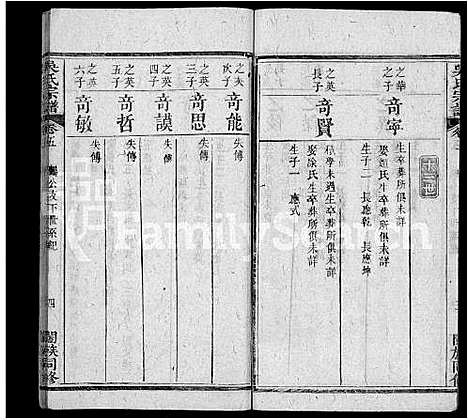 吳氏宗譜
十三世
之華子 奇寧
生卒葬所俱未詳
娶 氏生卒葬所俱未詳
生子二 長應乾 長應坤
之英長子 奇賢
從學未遇生卒葬所俱未詳
娶涂氏生卒葬所俱未詳
生子一 應式
之英次子 奇能 失傳
之英三子 奇思 失傳
之英四子 奇謨 失傳
之英五子 奇哲 失傳
之英六子 奇敏 失傳
吳氏宗譜
卷五
公收下
四
閤族同修
FamilySearch